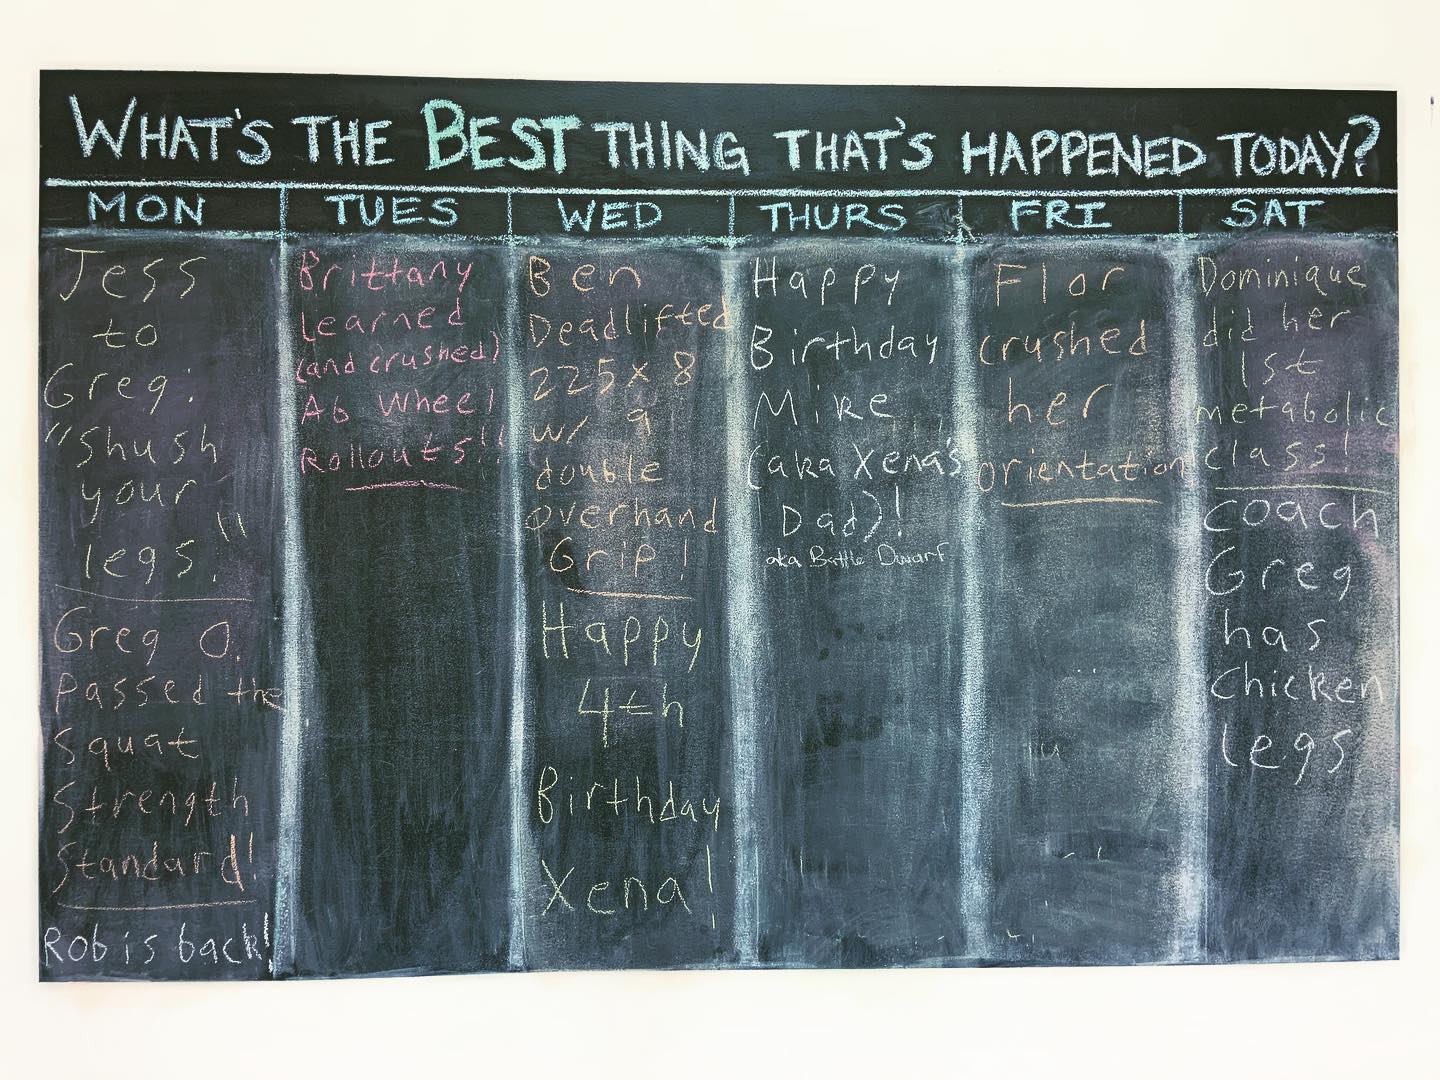 WHAT'S THE BEST THING THAT'S HAPPENED TODAY?
MON
TUES
WED
THURS
FRI
SAT
Jess
to
Greg:
"Shush
your
legs."
Greg O.
Passed the
Squat
Strength
Standard!
Rob is back!
Brittany
Learned
(and crushed)
Ab Wheel
Rollouts!!
Ben
Deadlifted
225x8
w/ a
double
overhand
Grip!
Happy
4th
Birthday
Xena!
Happy
Birthday
Mike
(aka Xena's
Dad)!
aka Battle Dwarf
Flor
crushed
her
orientation
Dominique
did her
1st
metabolic
class!
Coach
Greg
has
Chicken
legs